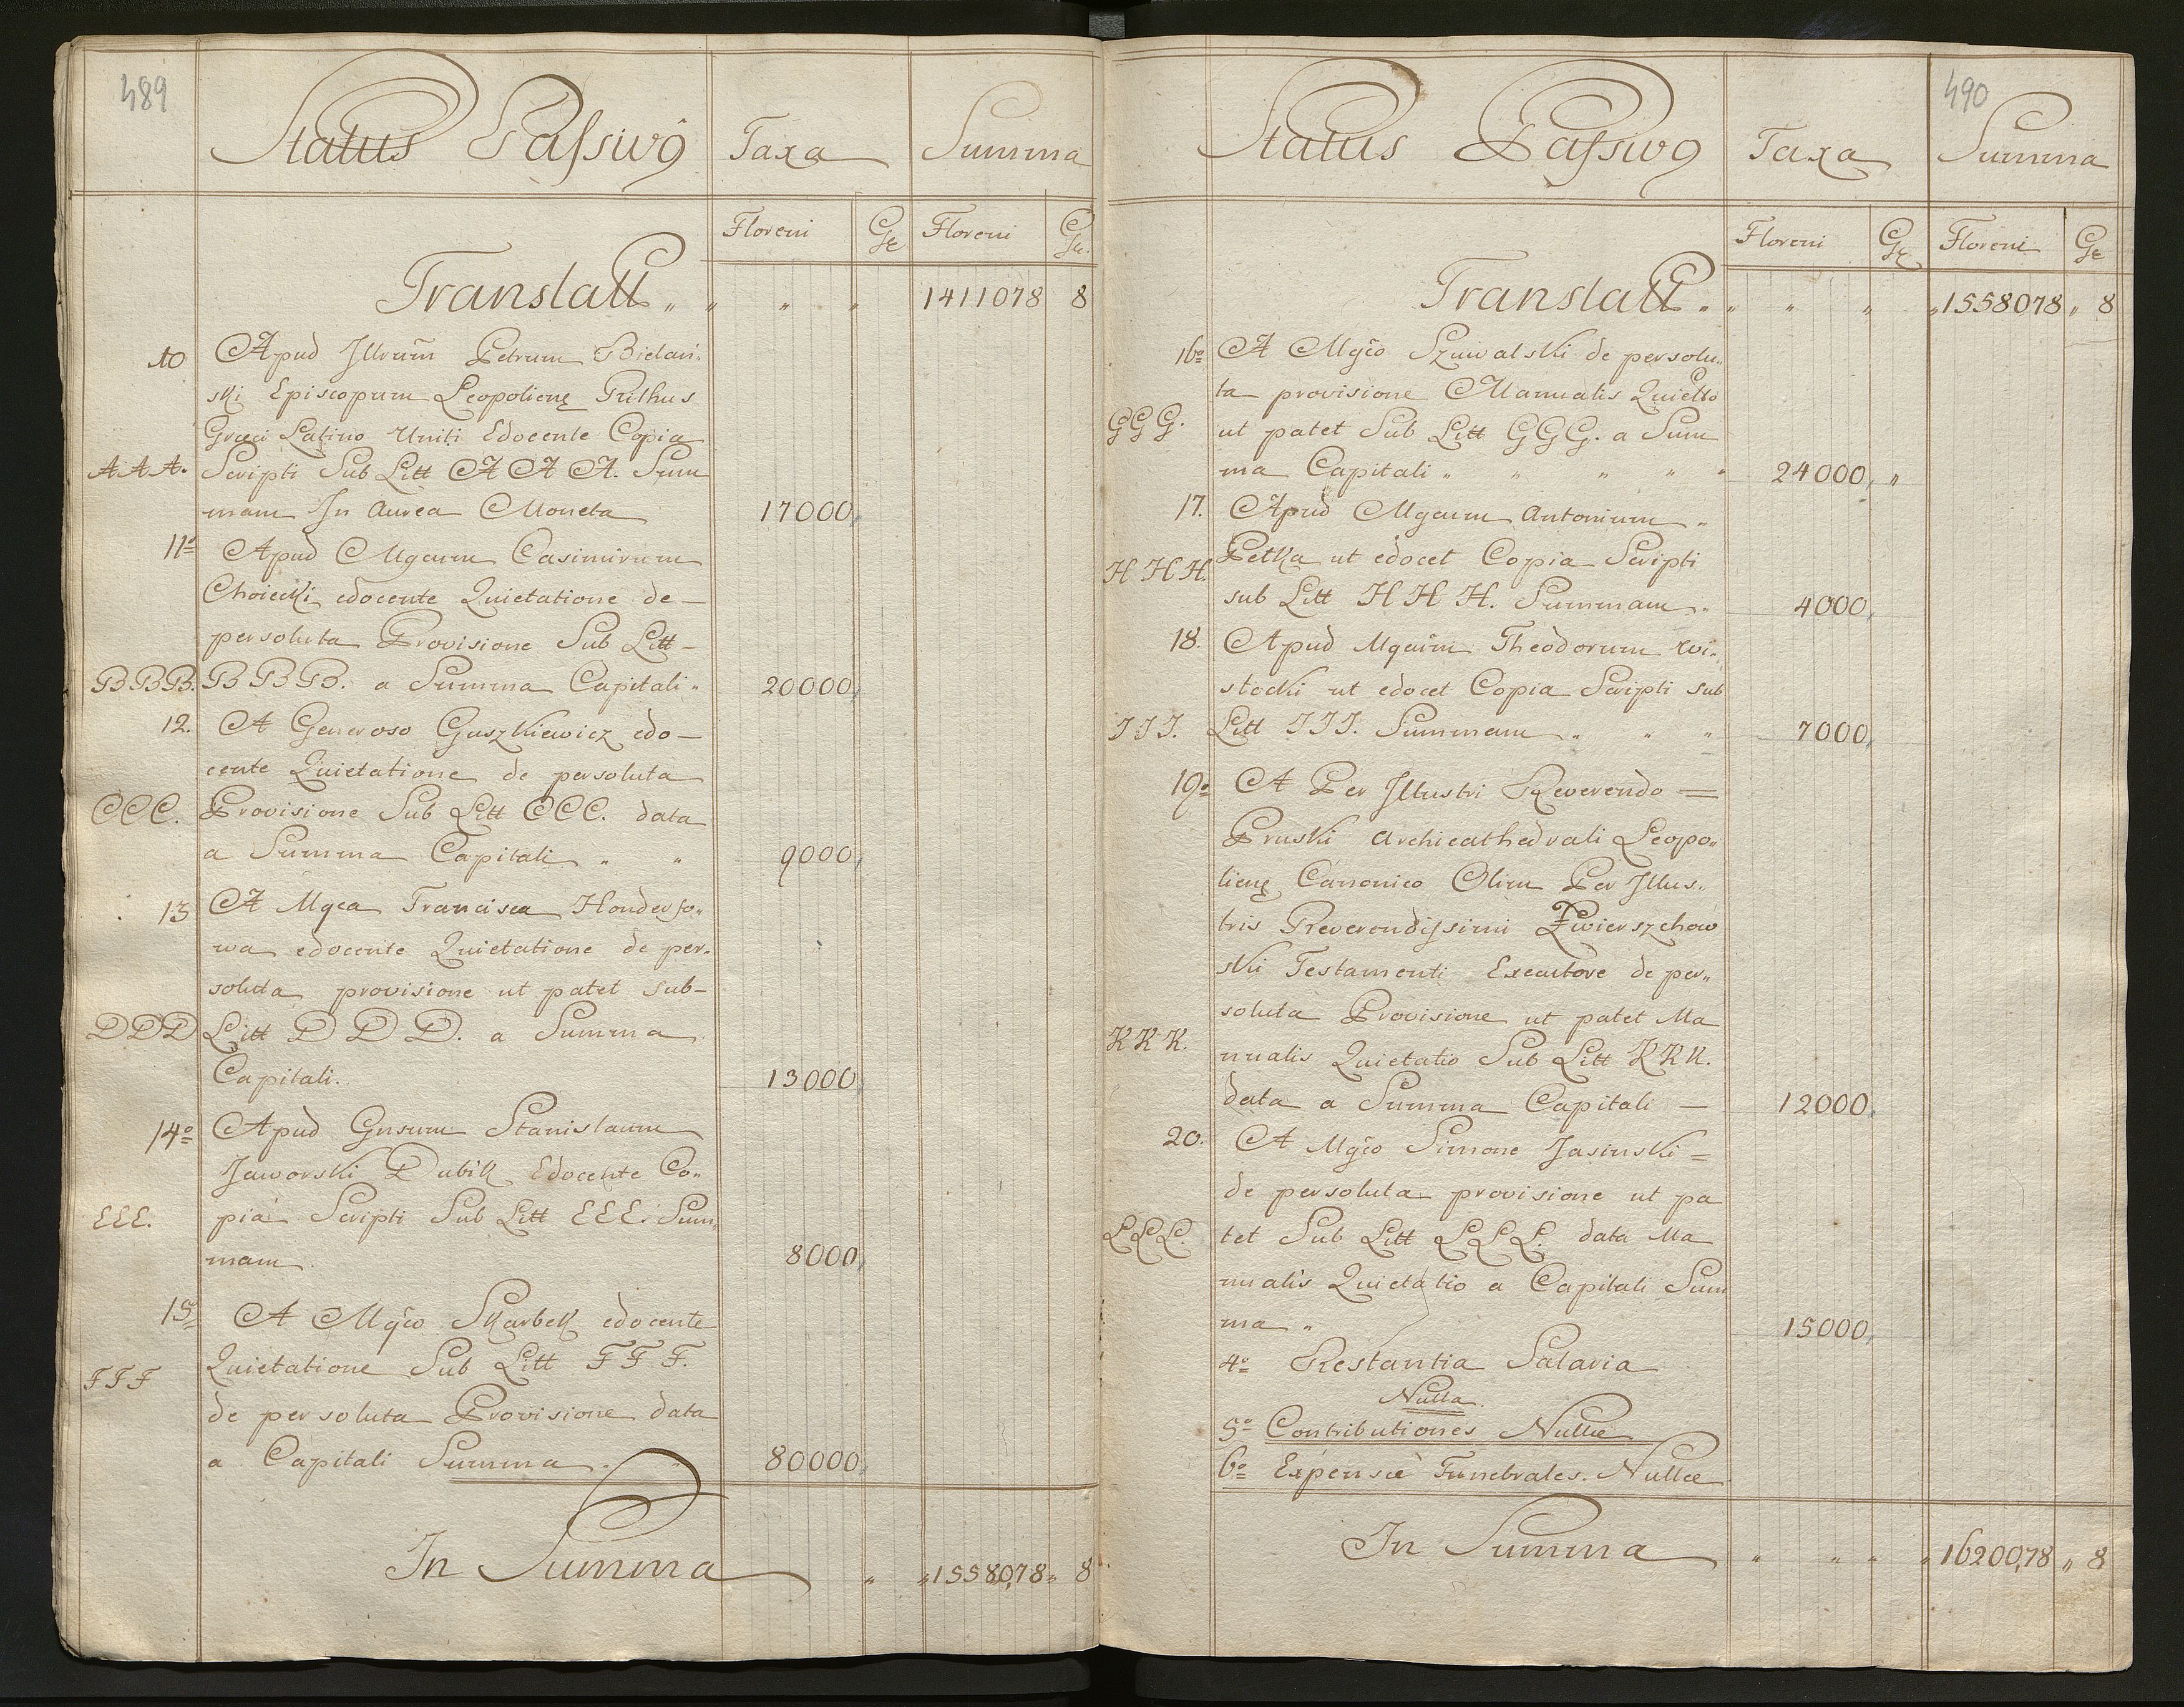 489
Status Passivꝯ Taxa Summa
Floreni Gr Floreni Gr.
Translatt „ „ „ „ 1411078 8
10 Apud Illrum̃ Petrum Bielań„
ski Episcopum Leopolienę Rithus
Græci Latino Uniti Edocente Copia
AAA. Scripti Sub Litt A A A. Sum
mam In aurea Moneta 17000,
11º Apud Mgcum Casimirum
Choiecki edocente Quietatione de—
persoluta Provisione Sub Litt—
BBB. BBB. a Summa Capitali„ 20000,
12. A Generoso Guszkiewicz edo—
cente Quietatione de persoluta
CCC. Provisione Sub Litt CCC. data
a Summa Capitali „ „ 9000,
13 A Mgca Francisca Honderso„
wa edocente Quietatione de per„
soluta provisione ut patet sub—
DDD Litt D D D. a Summa
Capitali. 13000,
14º Apud Gnsum Stanislaum
Jaworski Dubik Edocente Co„
EEE. pia Scripti Sub Litt EEE. Sum„
mam 8000,
15 A Mgco Skarbek edocente
FFF Quietatione Sub Litt FFF.
de persoluta Provisione data
a Capitali Summa. „ 80000,
In Summa „ „1558078„ 8
490
Status Passivꝯ Taxa Summa
Floreni Gr Floreni Gr
Translatt „ „ „ „ „1558078„ 8
16º A Mgco Szuwalski de persolu„
ta provisione Manualis Quietto
GGG. ut patet Sub Litt GGG. a Sum
ma Capitali „ „ „ „ „ 24000, „
17. Apud Mgcum Antonium „
HHH. Petka ut edocet Copia Scripti
sub Litt H H H. Summam „ 4000,
18. Apud Mgcum Theodorum Wi„
stocki ut edocet Copia Scripti sub
JJJ. Litt JJJ. Summam „ „ „ 7000,
19º A Per Illustri Reverendo =
Pruski Archicathedrali Leopo„
lienę Canonico Olim Per Illus„
tris Reverendissimi Zwierszchow
skii Testamenti Executore de per„
soluta Provisione ut patet Ma
KKK. nualis Quietatio Sub Litt KKK.
data a Summa Capitali — 12000,
20. A Mgco Simone Jasinski =
de persoluta provisione ut pa
LLL. tet Sub Litt LLL. data Ma
nualis Quietatio a Capitali Sum
ma „ 15000,
4º Restantia Salaria
Nulla.
5º Contributiones Nullæ
6º Expensæ Funebrales. Nullæ
In Summa „ „ „ „1620078 „ 8